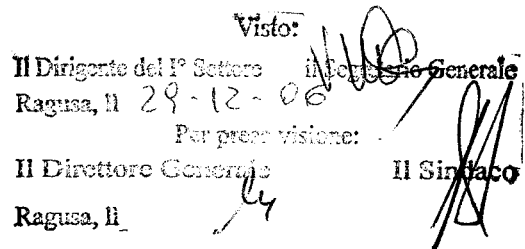 Visto:
Il Dirigente del I° Settore il Segretario Generale
Ragusa, li 29-12-06
Per presa visione:
Il Direttore Generale Il Sindaco
Ragusa, li